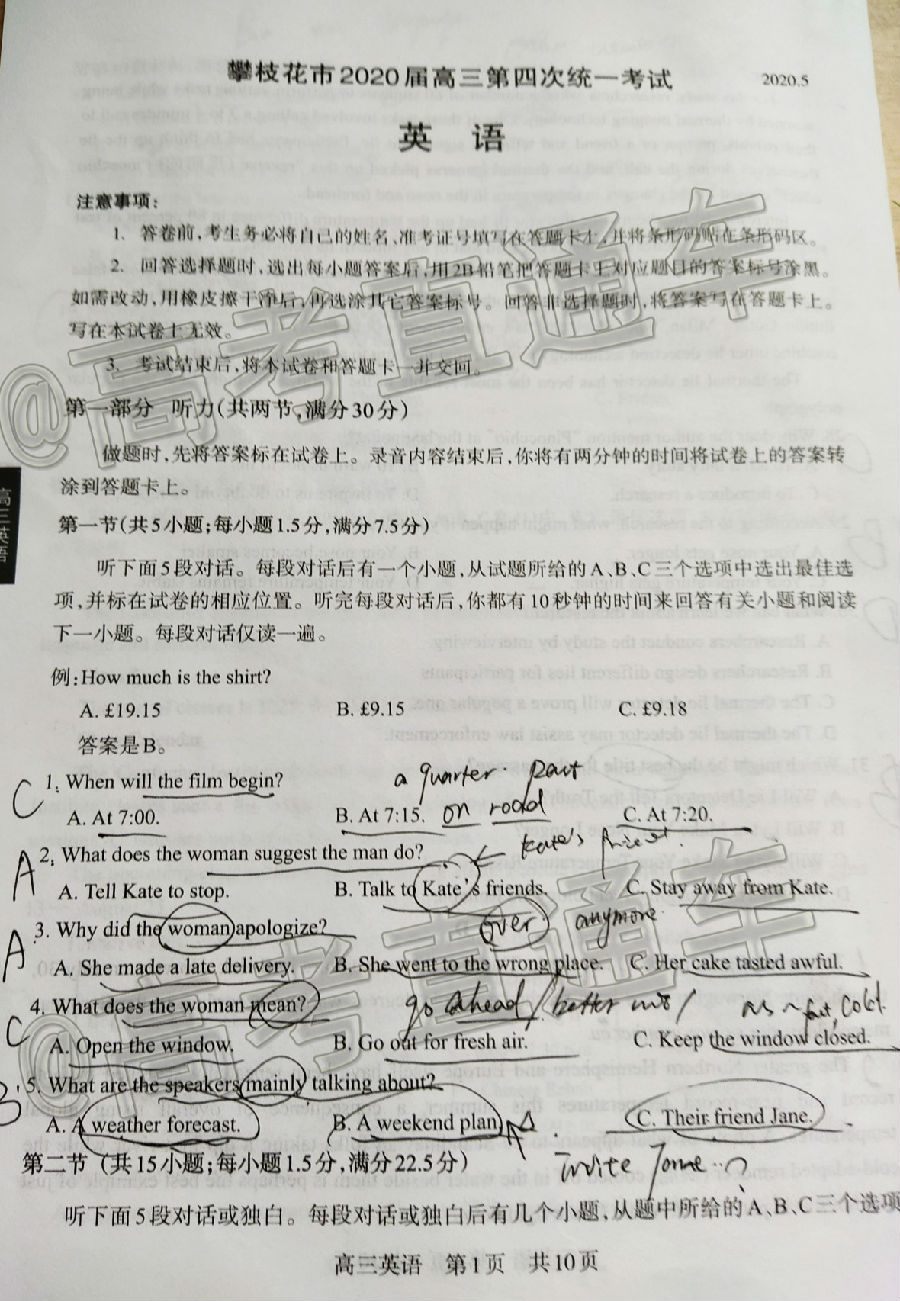 攀枝花市2020届高三第四次统一考试 2020.5
英 语
注意事项:
1. 答卷前,考生务必将自己的姓名、准考证号填写在答题卡上,并将条形码贴在条形码区。
2. 回答选择题时,选出每小题答案后,用2B铅笔把答题卡上对应题目的答案标号涂黑。
如需改动,用橡皮擦干净后,再选涂其它答案标号。回答非选择题时,将答案写在答题卡上。
写在本试卷上无效。
3. 考试结束后,将本试卷和答题卡一并交回。
@高考直通车
第一部分 听力(共两节,满分30分)
做题时,先将答案标在试卷上。录音内容结束后,你将有两分钟的时间将试卷上的答案转
涂到答题卡上。
高三英语
第一节(共5小题;每小题1.5分,满分7.5分)
听下面5段对话。每段对话后有一个小题,从试题所给的A、B、C三个选项中选出最佳选
项,并标在试卷的相应位置。听完每段对话后,你都有10秒钟的时间来回答有关小题和阅读
下一小题。每段对话仅读一遍。
例:How much is the shirt?
A. £19.15 B. £9.15 C. £9.18
答案是B。
C 1. When will the film begin? a quarter past
A. At 7:00. B. At 7:15. on road C. At 7:20.
A 2. What does the woman suggest the man do? ← Kate's
A. Tell Kate to stop. B. Talk to Kate's friends. C. Stay away from Kate.
A 3. Why did the woman apologize? over anymore
A. She made a late delivery. B. She went to the wrong place. C. Her cake tasted awful.
C 4. What does the woman mean? go ahead / better not / cold
A. Open the window. B. Go out for fresh air. C. Keep the window closed.
B 5. What are the speakers mainly talking about?
A. A weather forecast. B. A weekend plan C. Their friend Jane.
invite Jane
@高考直通车
第二节 (共15小题;每小题1.5分,满分22.5分)
听下面5段对话或独白。每段对话或独白后有几个小题,从题中所给的A、B、C三个选项
高三英语 第1页 共10页